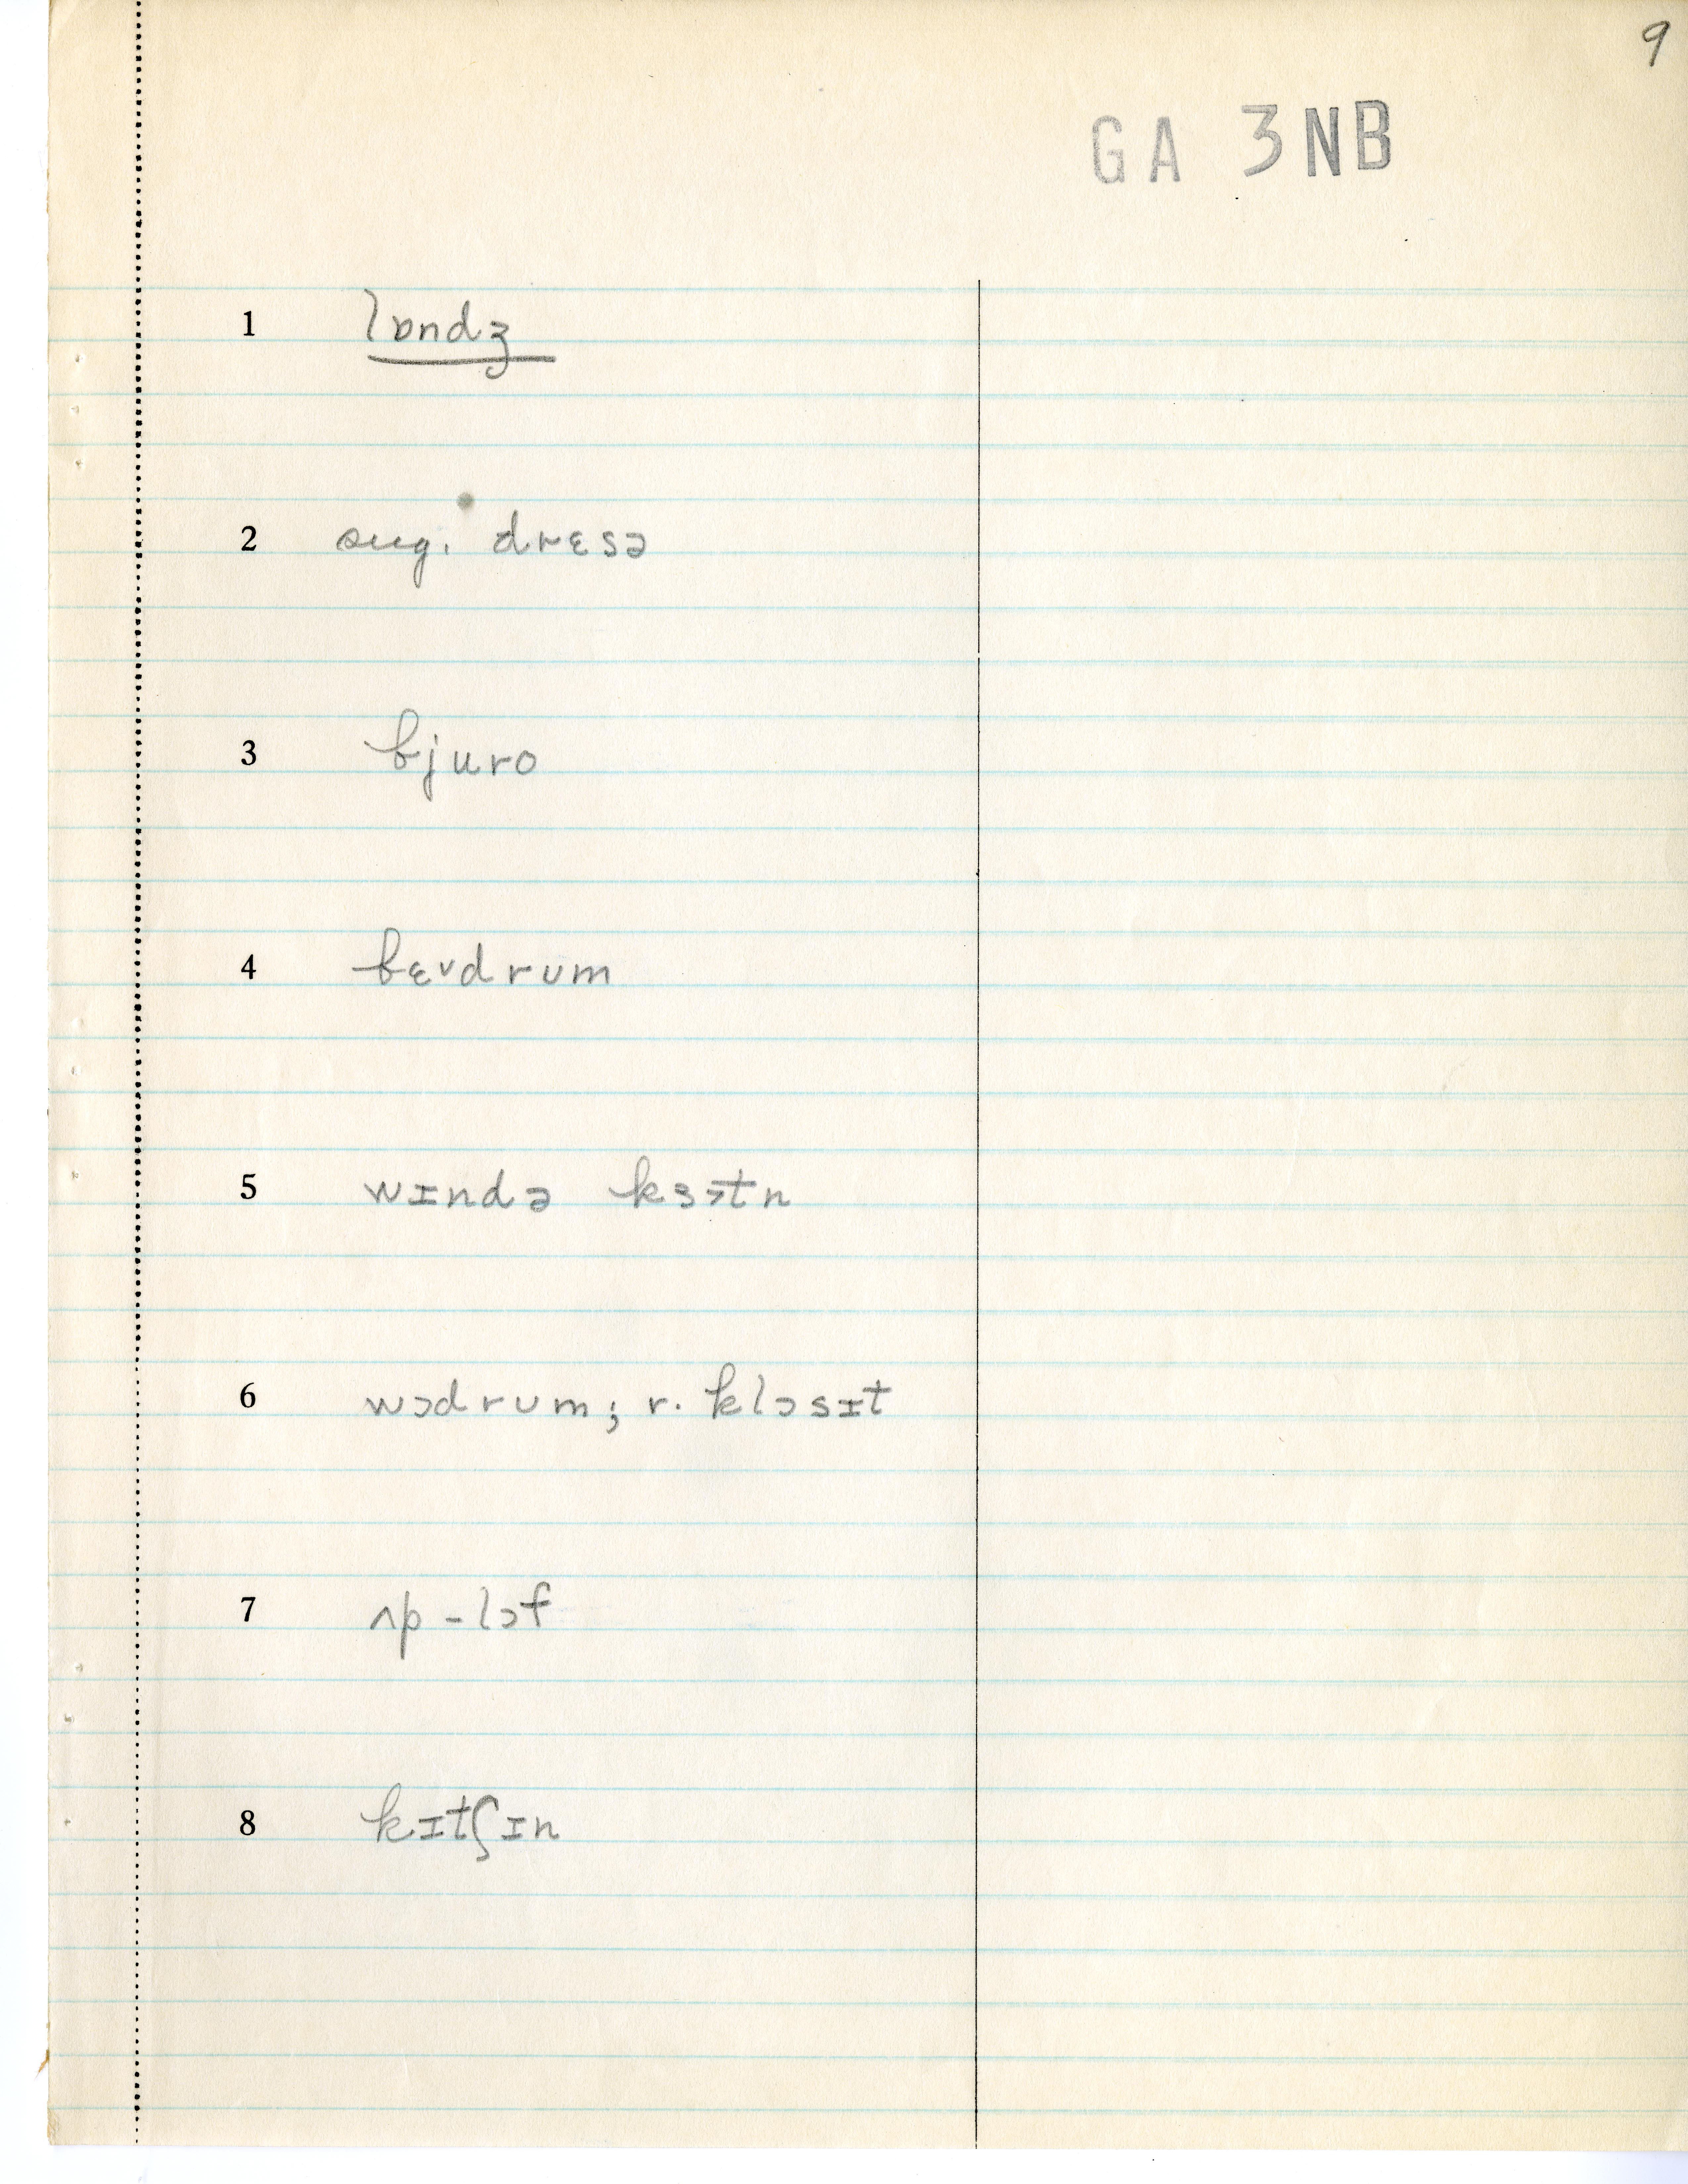 9
GA 3NB
1 lɒndʒ
2 sug. dresə
3 bjuro
4 bɛvdrum
5 wɪndə kɜɜtn
6 wɔdrum; r. klɔsɪt
7 ʌp-lɔf
8 kɪtʃɪn